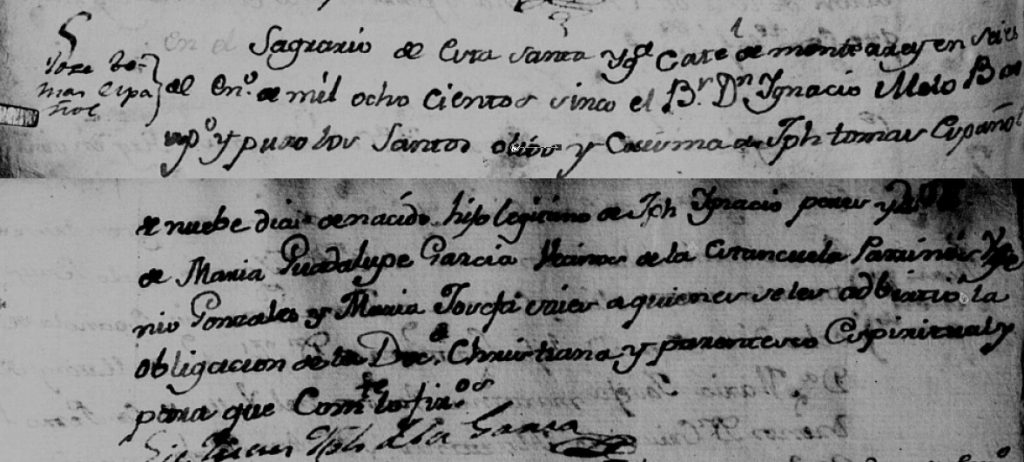 Jose To-
mas Espa
ñol
En el Sagrario de esta Santa Yg.a Cat.l de Monterrey en seis
de En.o de mil ocho cientos sinco el B.r D.n Ygnacio Melo Bau
ysó y puso los Santos olios y Crisma a Jph tomas Español
de nuebe dias de nacido hijo legitimo de Jph Ygnacio y
de Maria Guadalupe Garcia Vecinos de la estancuela Padrinos
nio Gonzales y Maria Josefa a quienes se les adbirtio la
obligacion de la Doc.a Christiana y parentesco Espiritual y
para que Con.te lo fir.os
Jph de la Garza